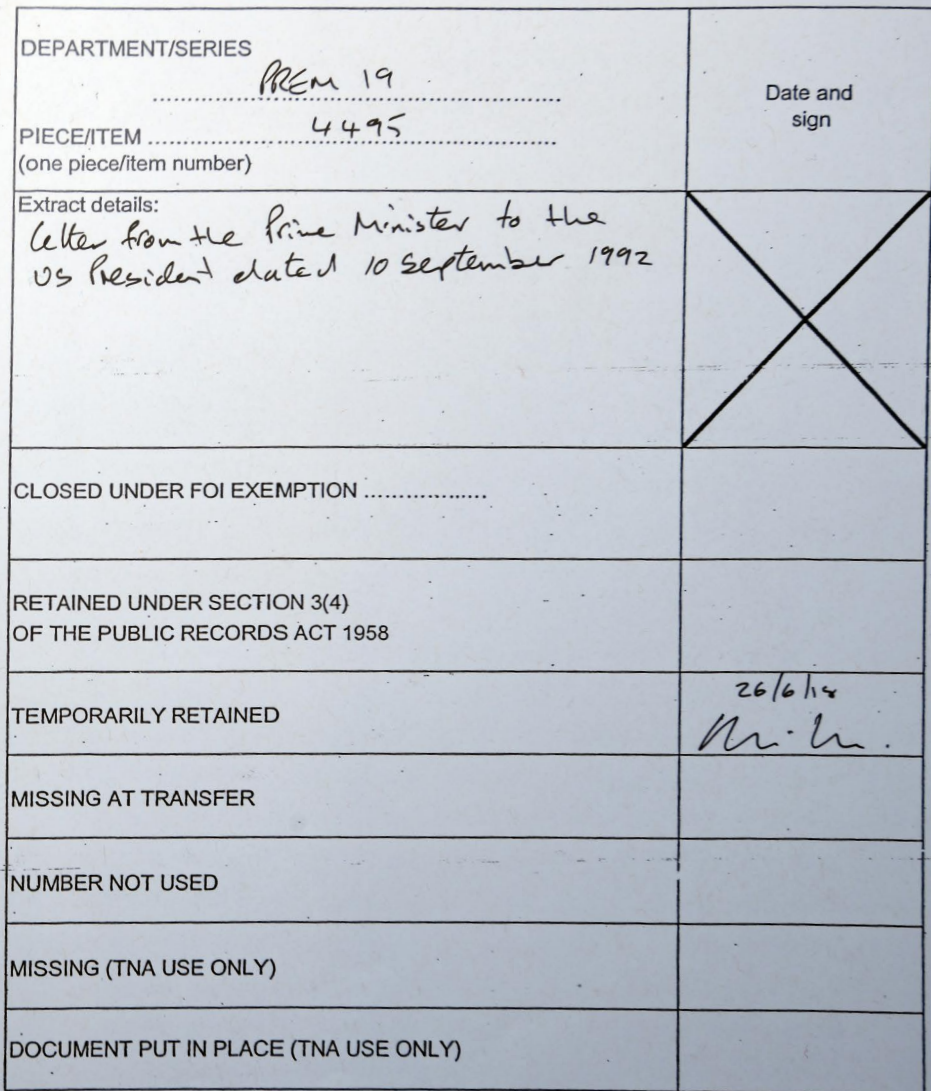 DEPARTMENT/SERIES
PREM 19
Date and
sign
PIECE/ITEM ............ 4495 ............
(one piece/item number)
Extract details:
letter from the Prime Minister to the
US President dated 10 September 1992
CLOSED UNDER FOI EXEMPTION ..................
RETAINED UNDER SECTION 3(4)
OF THE PUBLIC RECORDS ACT 1958
TEMPORARILY RETAINED
26/6/18
MISSING AT TRANSFER
NUMBER NOT USED
MISSING (TNA USE ONLY)
DOCUMENT PUT IN PLACE (TNA USE ONLY)